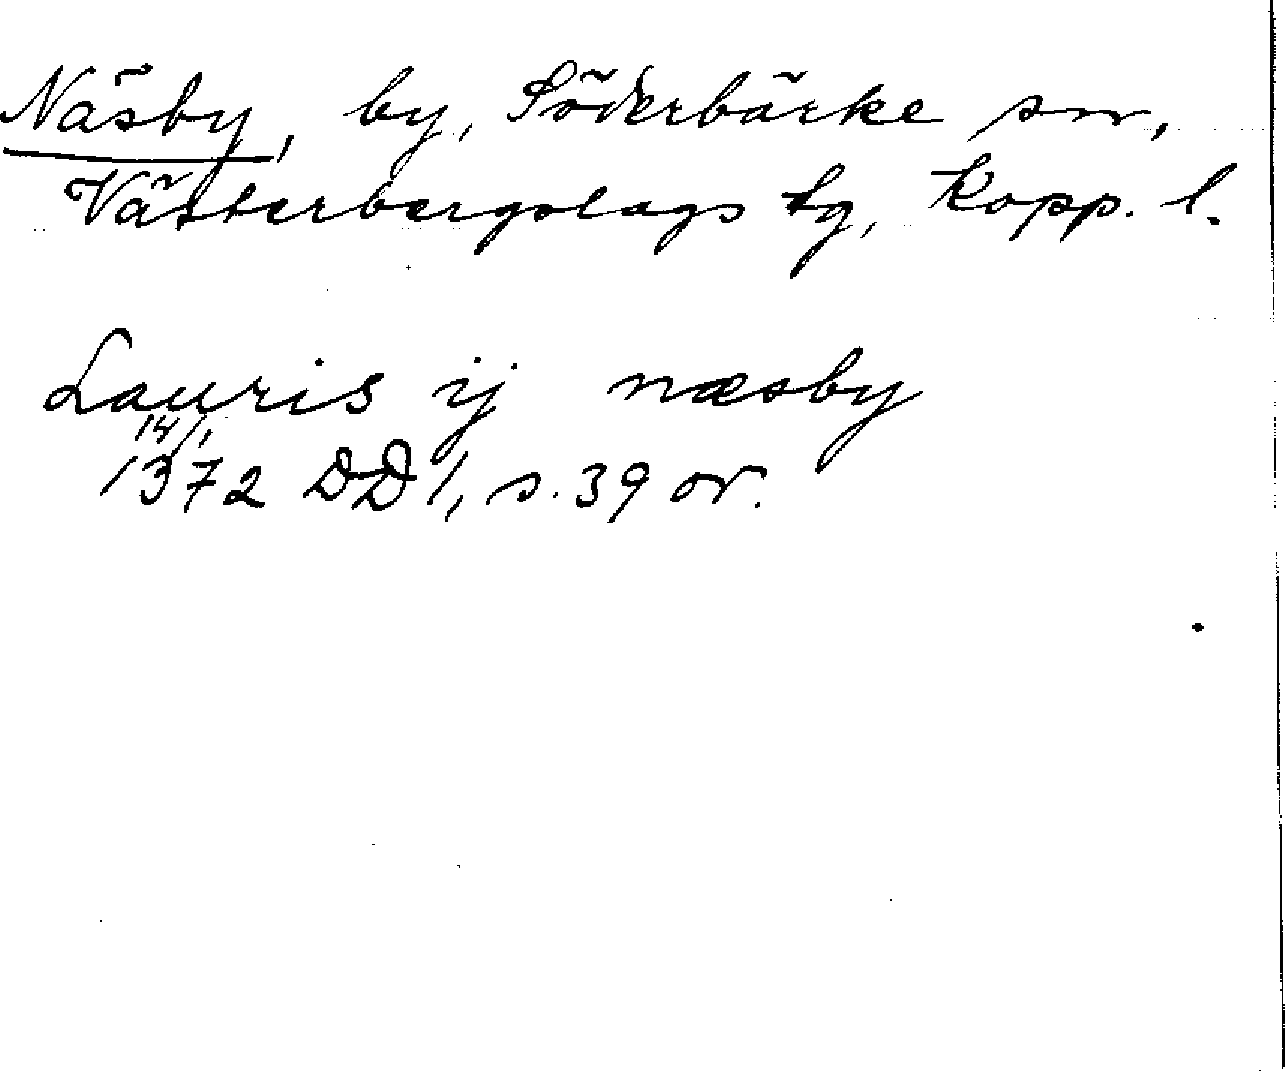 Näsby, by, Söderbärke sn,
Västerbergslags tg, Kopp. l.
Lauris ij næsby
14/1
1372 DD 1, s. 39 or.